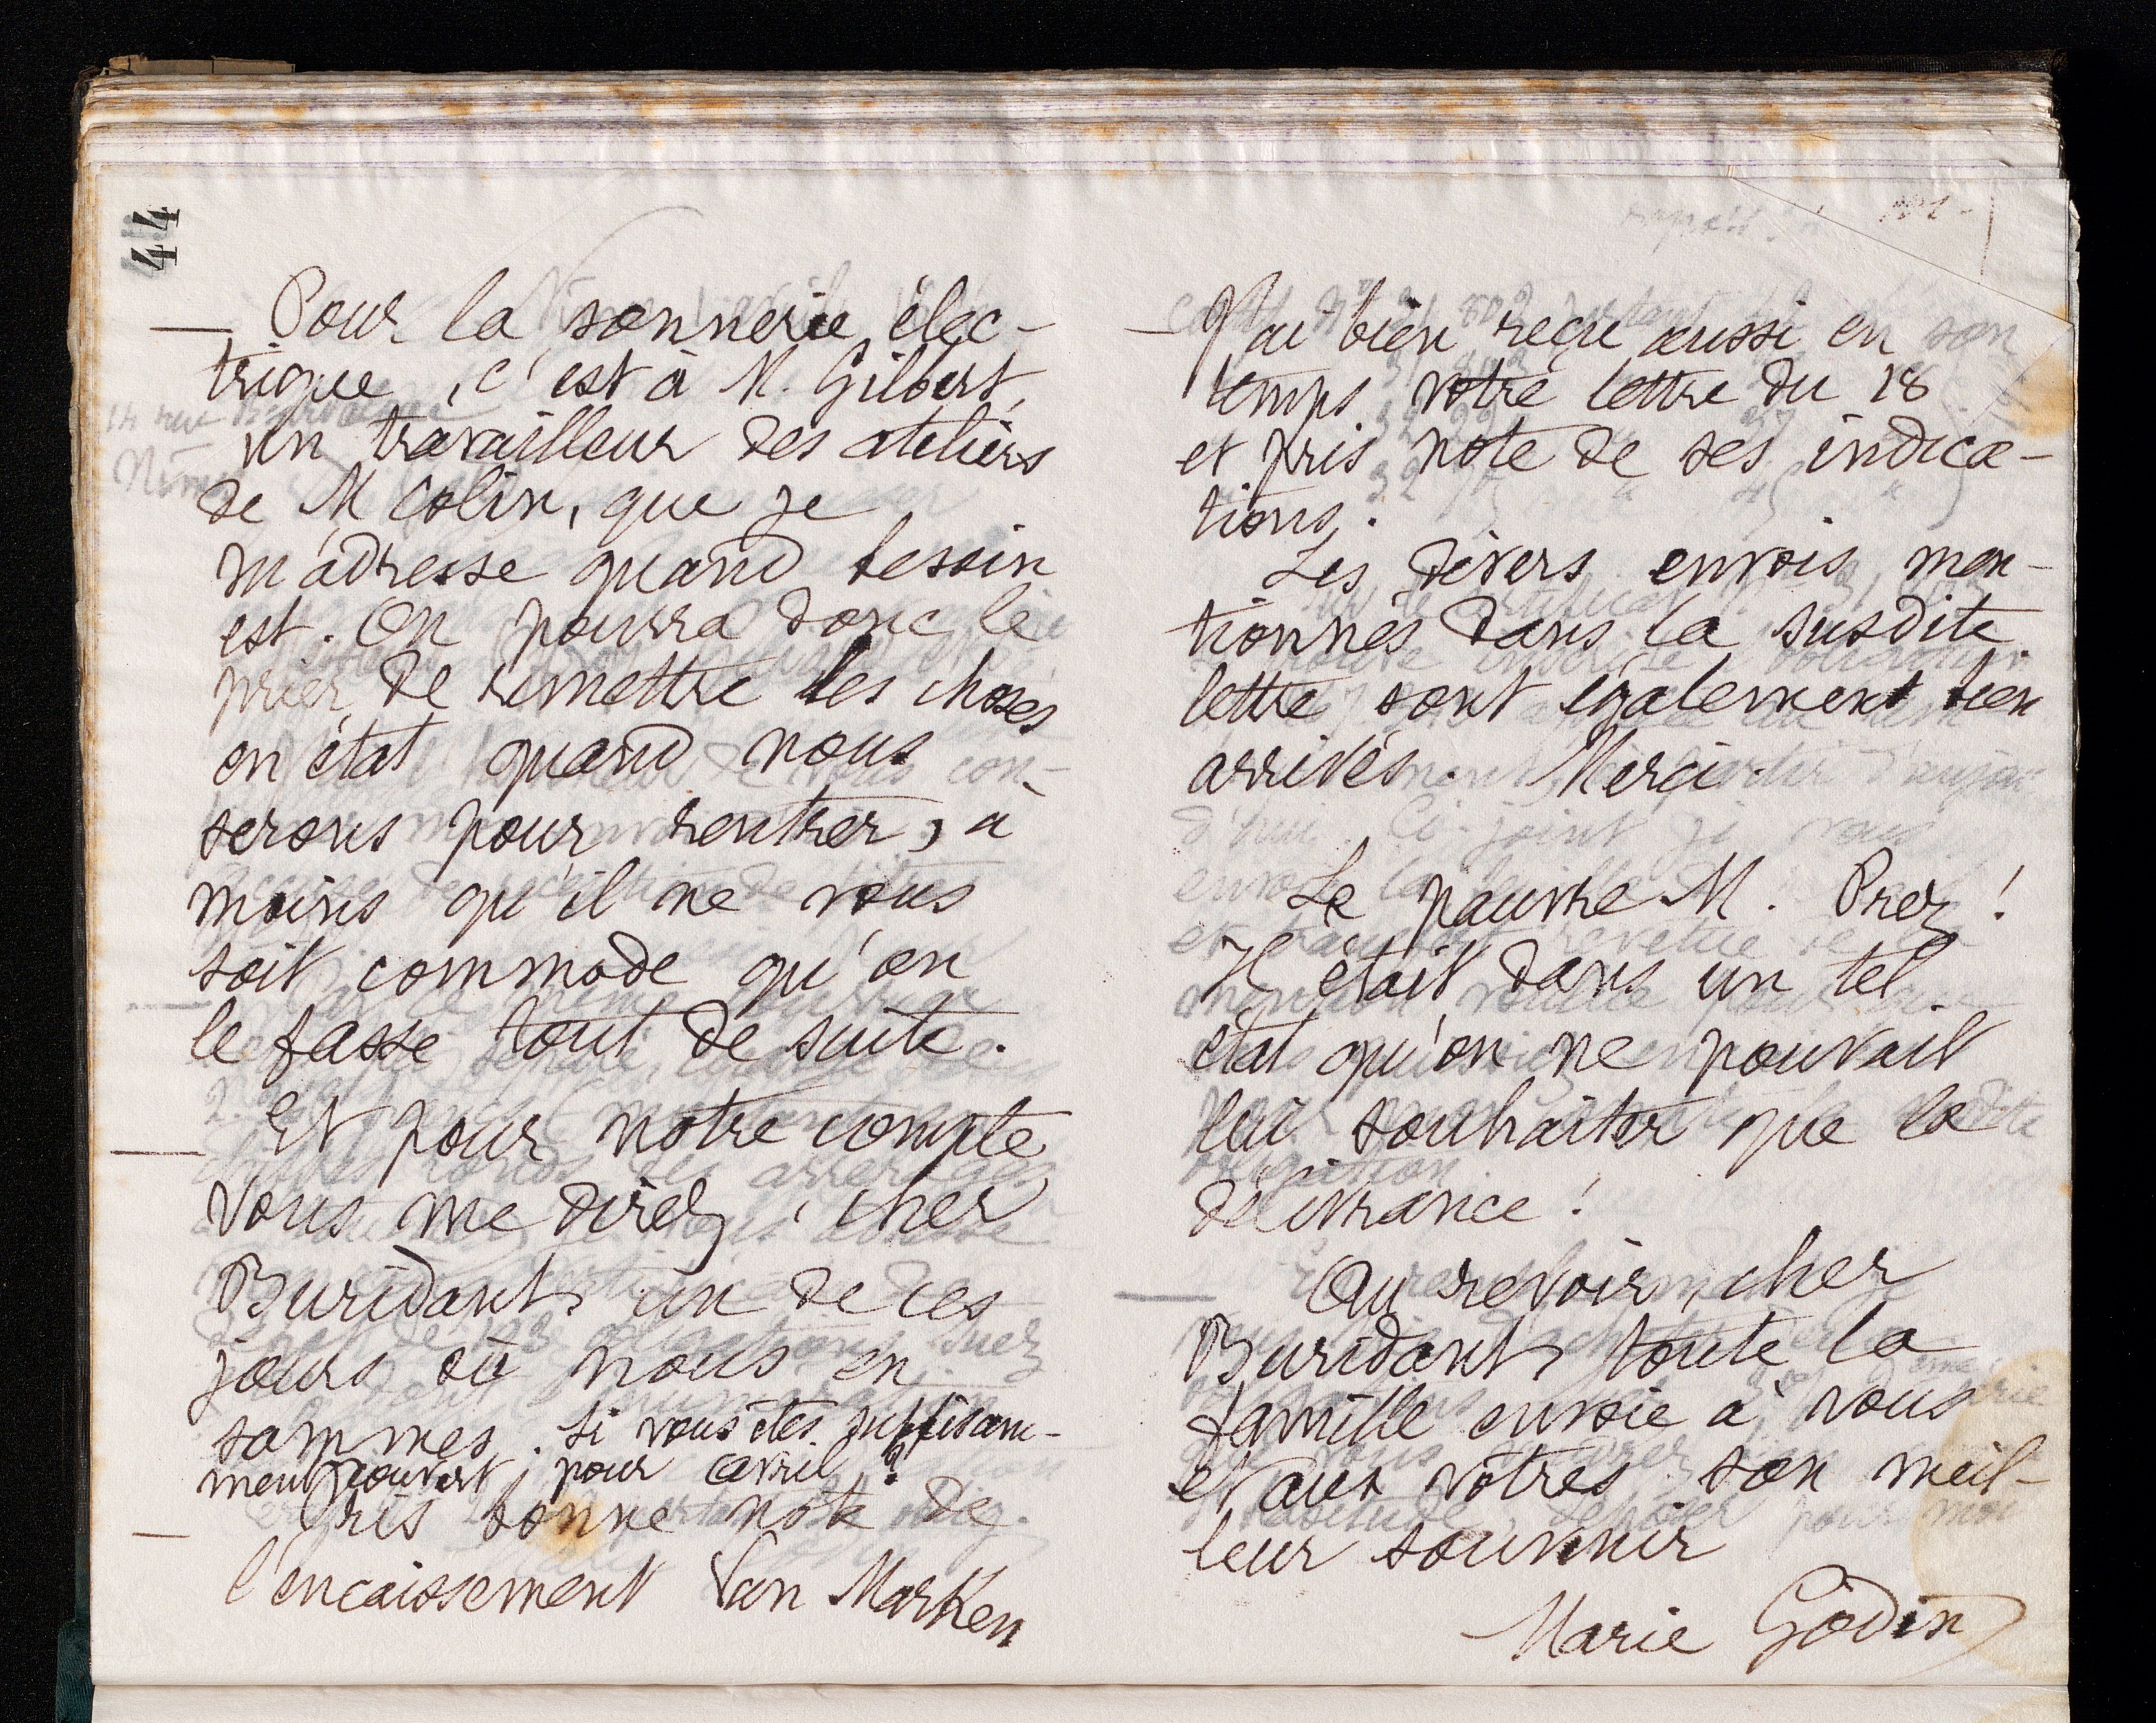 44
— Pour la sonnerie élec-
trique, c'est à M. Gilbert,
un travailleur des ateliers
de M Colin, que je
m'adresse quand besoin
est. On pourra donc le
prier de remettre les choses
en état quand nous
serons pour rentrer, à
moins qu'il ne vous
soit commode qu'on
le fasse tout de suite.
— Et pour notre compte
vous me direz, cher
Buridant, un de ces
jours où nous en
sommes. Si vous êtes suffisam-
ment couvert, pour avril ?
— Pris bonne note de
l'encaissement Van Marken
— J'ai bien reçu aussi en son
temps votre lettre du 18
et pris note de ses indica-
tions.
Les divers envois men-
tionnés dans la susdite
lettre sont également bien
arrivés. Merci.
Le pauvre M. Prez !
Il était dans un tel
état qu'on ne pouvait
lui souhaiter que la
délivrance !
— Au revoir, cher
Buridant, toute la
famille envoie à vous
et aux vôtres son meil-
leur souvenir
Marie Godin